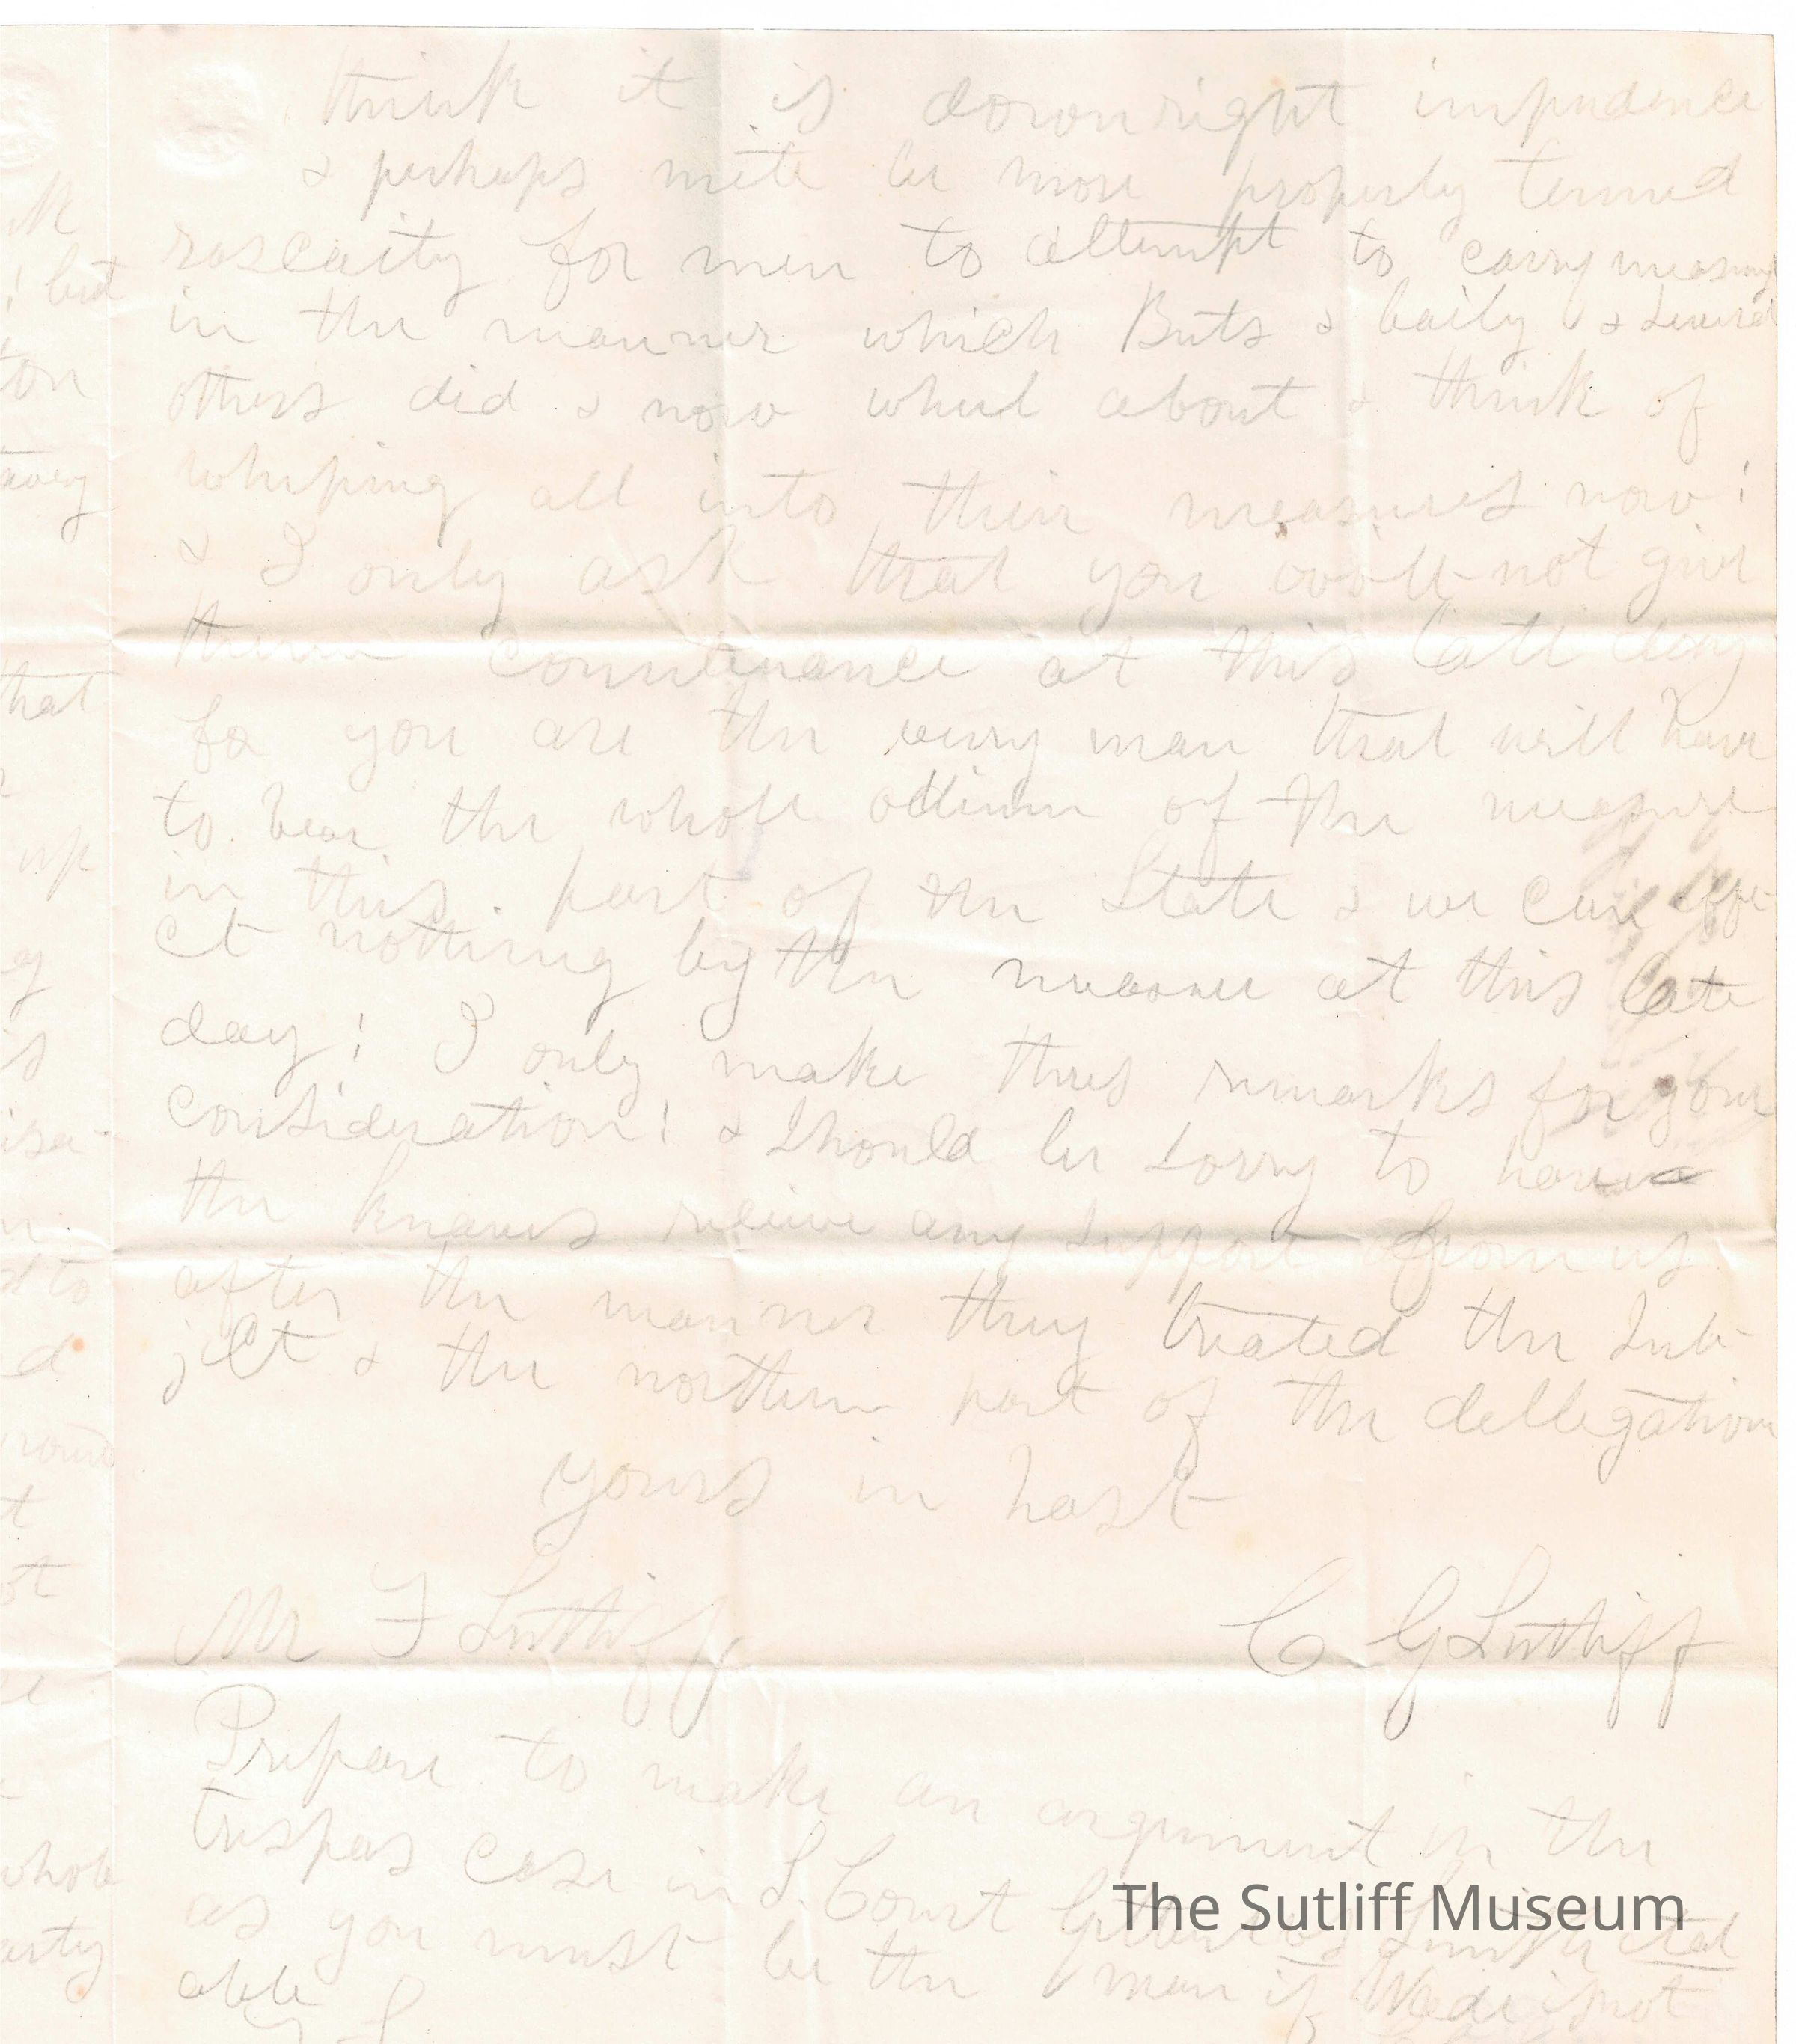 think it is downright impudence
& perhaps mite be more properly termed
rascality for men to attempt to carry measures
in the manner which Buts & baily & several
others did & now wheel about & think of
whiping all into their measures now!
& I only ask that you will not give
them countenance at this late day
for you are the very man that will have
to bear the whole odium of the measure
in this part of the State & we can effe-
ct nothing by the measure at this late
day! I only make thes remarks for your
consideration! & should be sorry to have
the knaves recieve any support from us
after the manner they treated the Sub-
ject & the northern part of the dellegation
yours in hast
Mr F Sutliff
C G Sutliff
Prepare to make an argument in the
trespas case in S. Court
as you must be the man if Wade is not
able
The Sutliff Museum
ik
! but
ton
that
up
g
is
isa-
d to
d
t
ot
whole
arty